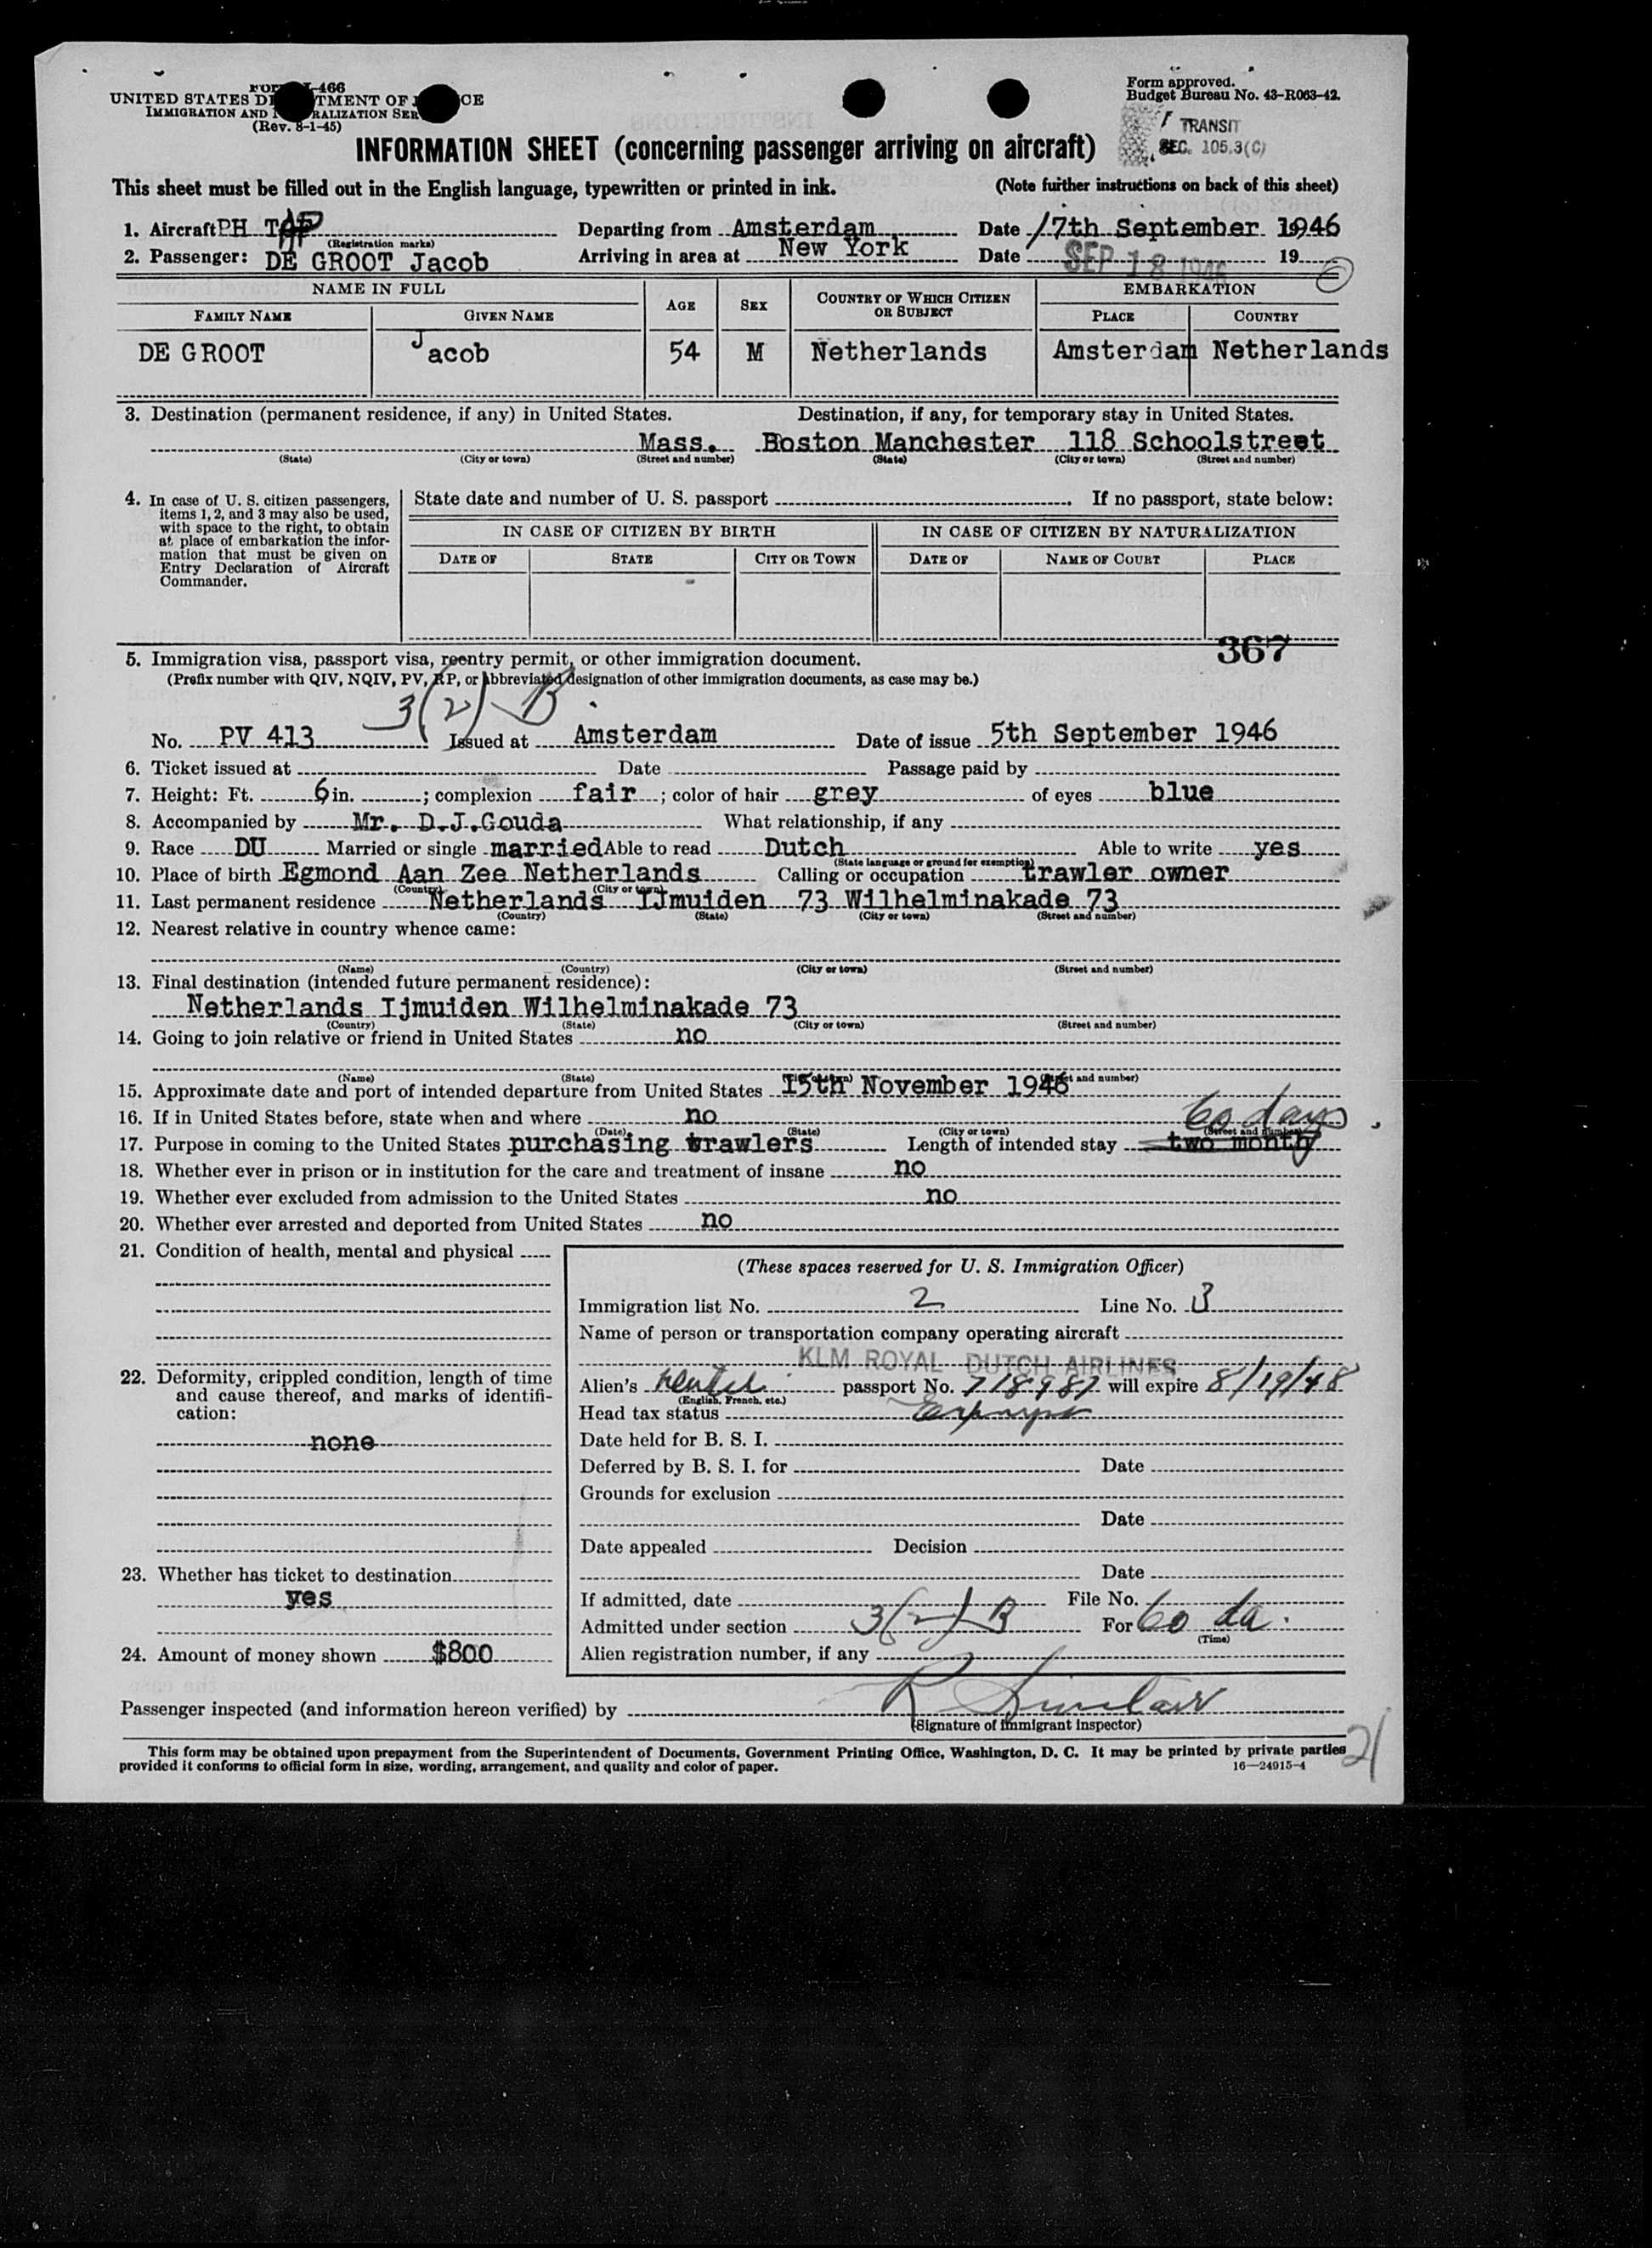 FORM I-466
UNITED STATES DEPARTMENT OF JUSTICE
IMMIGRATION AND NATURALIZATION SER
(Rev. 8-1-45)
Form approved.
Budget Bureau No. 43-R063-42.
TRANSIT
SEC. 105.3(C)
INFORMATION SHEET (concerning passenger arriving on aircraft)
This sheet must be filled out in the English language, typewritten or printed in ink. (Note further instructions on back of this sheet)
1. Aircraft PH TAF Departing from Amsterdam Date 17th September 1946
(Registration marks)
2. Passenger: DE GROOT Jacob Arriving in area at New York Date SEP 18 1946 19
NAME IN FULL AGE SEX COUNTRY OF WHICH CITIZEN OR SUBJECT EMBARKATION
FAMILY NAME GIVEN NAME PLACE COUNTRY
DE GROOT Jacob 54 M Netherlands Amsterdam Netherlands
3. Destination (permanent residence, if any) in United States. Destination, if any, for temporary stay in United States.
Mass. Boston Manchester 118 Schoolstreet
(State) (City or town) (Street and number) (State) (City or town) (Street and number)
4. In case of U. S. citizen passengers, items 1, 2, and 3 may also be used, with space to the right, to obtain at place of embarkation the information that must be given on Entry Declaration of Aircraft Commander.
State date and number of U. S. passport If no passport, state below:
IN CASE OF CITIZEN BY BIRTH IN CASE OF CITIZEN BY NATURALIZATION
DATE OF STATE CITY OR TOWN DATE OF NAME OF COURT PLACE
367
5. Immigration visa, passport visa, reentry permit, or other immigration document.
(Prefix number with QIV, NQIV, PV, RP, or abbreviated designation of other immigration documents, as case may be.)
3(2) B
No. PV 413 Issued at Amsterdam Date of issue 5th September 1946
6. Ticket issued at Date Passage paid by
7. Height: Ft. 6 in. ; complexion fair ; color of hair grey of eyes blue
8. Accompanied by Mr. D.J.Gouda What relationship, if any
9. Race DU Married or single married Able to read Dutch Able to write yes
(State language or ground for exemption)
10. Place of birth Egmond Aan Zee Netherlands Calling or occupation trawler owner
(Country) (City or town)
11. Last permanent residence Netherlands IJmuiden 73 Wilhelminakade 73
(Country) (State) (City or town) (Street and number)
12. Nearest relative in country whence came:
(Name) (Country) (City or town) (Street and number)
13. Final destination (intended future permanent residence):
Netherlands Ijmuiden Wilhelminakade 73
(Country) (State) (City or town) (Street and number)
14. Going to join relative or friend in United States no
(Name) (State) (City or town) (Street and number)
15. Approximate date and port of intended departure from United States 15th November 1946
16. If in United States before, state when and where no
(Date) (State) (City or town) (Street and number)
60 days
17. Purpose in coming to the United States purchasing trawlers Length of intended stay two month
18. Whether ever in prison or in institution for the care and treatment of insane no
19. Whether ever excluded from admission to the United States no
20. Whether ever arrested and deported from United States no
21. Condition of health, mental and physical
22. Deformity, crippled condition, length of time and cause thereof, and marks of identification:
none
23. Whether has ticket to destination
yes
24. Amount of money shown $800
(These spaces reserved for U. S. Immigration Officer)
Immigration list No. 2 Line No. 3
Name of person or transportation company operating aircraft
KLM ROYAL DUTCH AIRLINES
Alien's passport No. 718987 will expire 8/19/48
(English, French, etc.)
Head tax status
Date held for B. S. I.
Deferred by B. S. I. for Date
Grounds for exclusion
Date
Date appealed Decision
Date
If admitted, date File No.
Admitted under section 3(2) B For 60 da.
(Time)
Alien registration number, if any
Passenger inspected (and information hereon verified) by R Sinclair
(Signature of immigrant inspector)
This form may be obtained upon prepayment from the Superintendent of Documents, Government Printing Office, Washington, D. C. It may be printed by private parties
provided it conforms to official form in size, wording, arrangement, and quality and color of paper. 16—24915-4
21